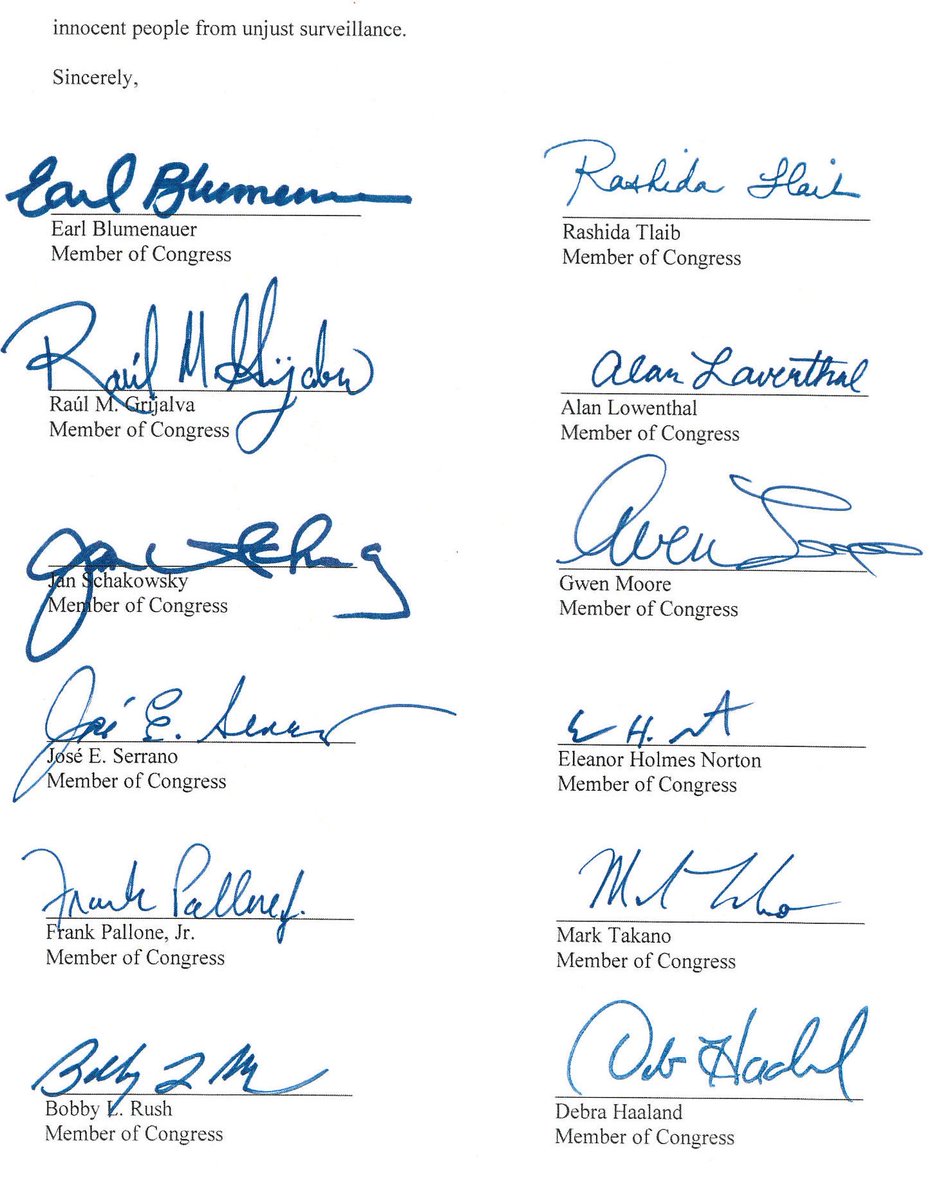 innocent people from unjust surveillance.
Sincerely,
Earl Blumenauer
Earl Blumenauer
Member of Congress
Rashida Tlaib
Rashida Tlaib
Member of Congress
Raúl M Grijalva
Raúl M. Grijalva
Member of Congress
Alan Lowenthal
Alan Lowenthal
Member of Congress
Jan
Jan Schakowsky
Member of Congress
Gwen
Gwen Moore
Member of Congress
José E. Serrano
José E. Serrano
Member of Congress
E H. Nort
Eleanor Holmes Norton
Member of Congress
Frank Pallone Jr.
Frank Pallone, Jr.
Member of Congress
Mark Takano
Mark Takano
Member of Congress
Bobby L
Bobby L. Rush
Member of Congress
Deb Haaland
Debra Haaland
Member of Congress